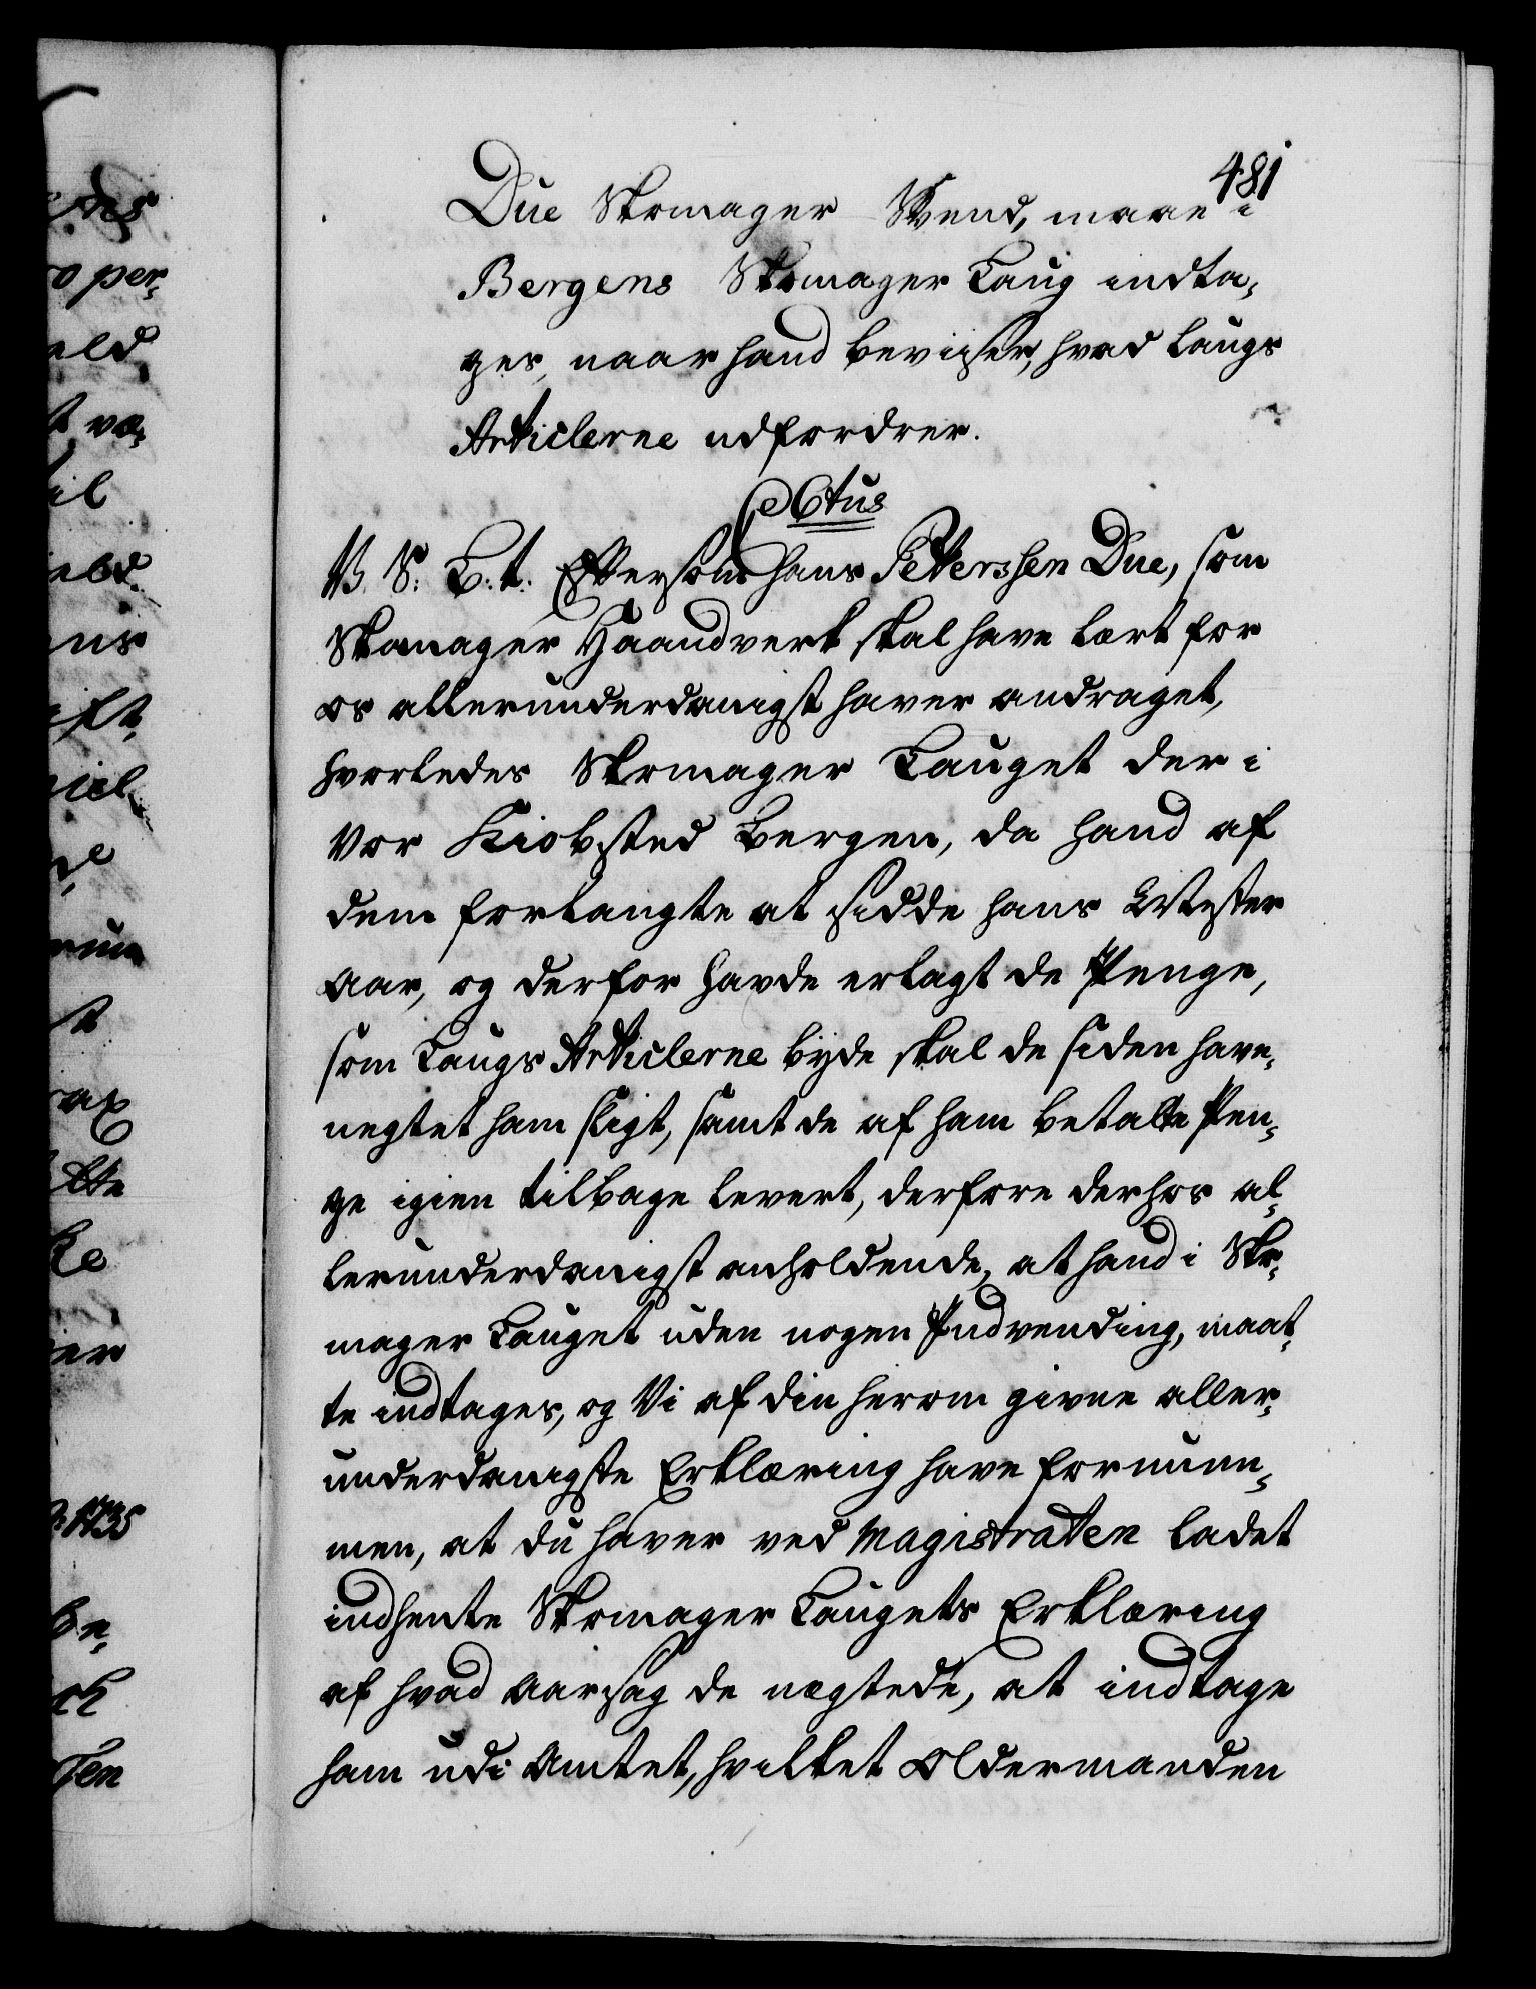 481
Due Skomager Svend, maae i
Bergens Skomager Laug indta,
ges, naar hand beviser, hvad Laugs
Articlerne udfordrer.
C 6tus
V. S. G. t. Eftersom Hans Pettersen Due, som
Skomager Haandverk skal have lært for
os allerunderdanigst haver andraget,
hvorledes Skomager Lauget der i
Vor Kiobsted Bergen, da hand af
dem forlangte at sidde hans Mester
Aar, og derfor havde erlagt de Penge,
som Laugs Articlerne byde skal de siden have
negtet ham sligt, samt de af ham betalte Pen,
ge igien tilbage levert, derfore derhos al,
lerunderdanigst anholdende, at hand i Sko,
mager Lauget uden nogen Indvending, maat,
te indtages, og Vi af din herom givne aller,
underdanigste Erklæring have fornum,
men, at du haver ved Magistraten ladet
indhente Skomager Laugets Erklæring
af hvad Aarsag de nægtede, at indtage
ham udi Amtet, hvilket Oldermanden